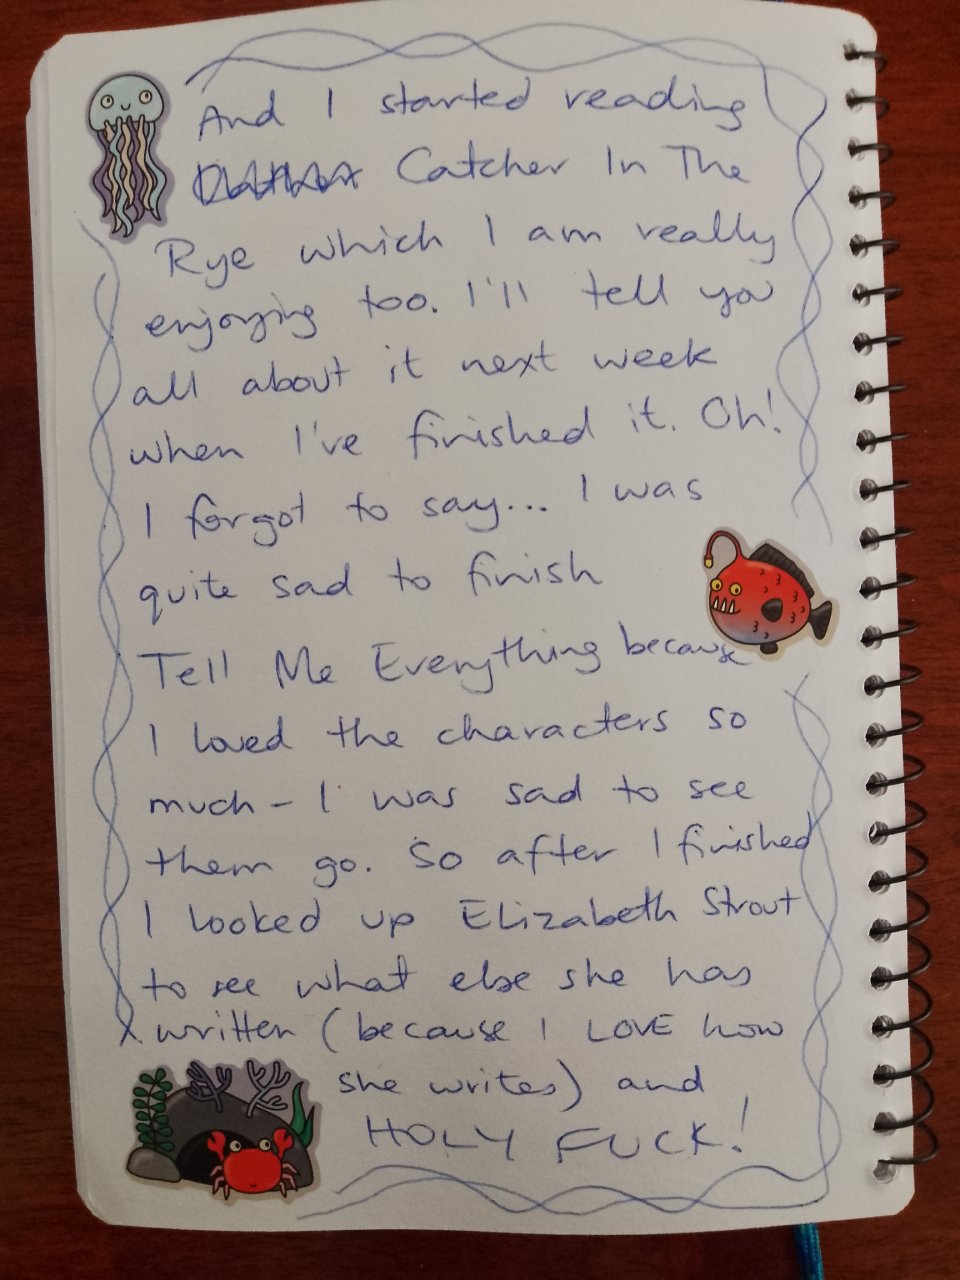 And I started reading
Catcher In The
Rye which I am really
enjoying too. I'll tell you
all about it next week
when I've finished it. Oh!
I forgot to say... I was
quite sad to finish
Tell Me Everything because
I loved the characters so
much - I was sad to see
them go. So after I finished
I looked up Elizabeth Strout
to see what else she has
written (because I LOVE how
she writes) and
HOLY FUCK!